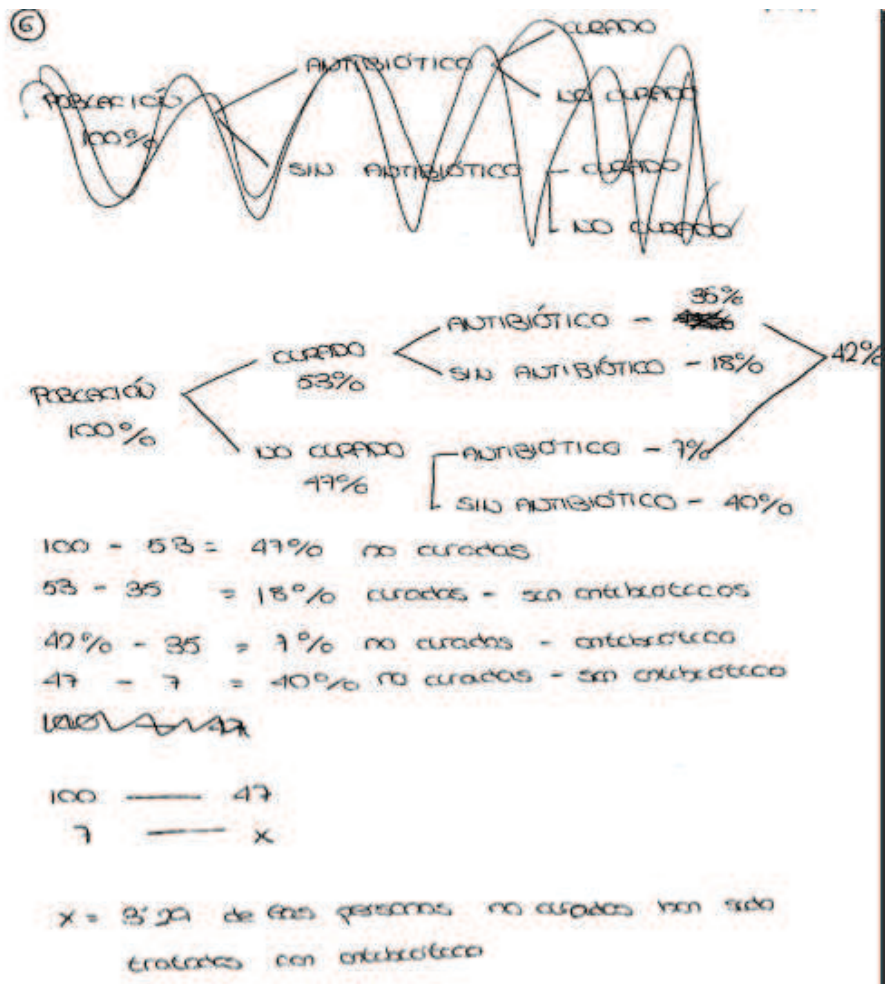 6
POBLACIÓN
100%
ANTIBIÓTICO
CURADO
NO CURADO
SIN ANTIBIÓTICO - CURADO
NO CURADO
POBLACIÓN
100%
CURADO
53%
ANTIBIÓTICO - 35%
SIN ANTIBIÓTICO - 18%
42%
NO CURADO
47%
ANTIBIÓTICO - 7%
SIN ANTIBIÓTICO - 40%
100 - 53 = 47% no curadas
53 - 35 = 18% curados - sin antibióticos
42% - 35 = 7% no curados - antibiótico
47 - 7 = 40% no curados - sin antibiótico
100 — 47
7 — x
x = 3'29 de las personas no curados han sido
tratados con antibiótico